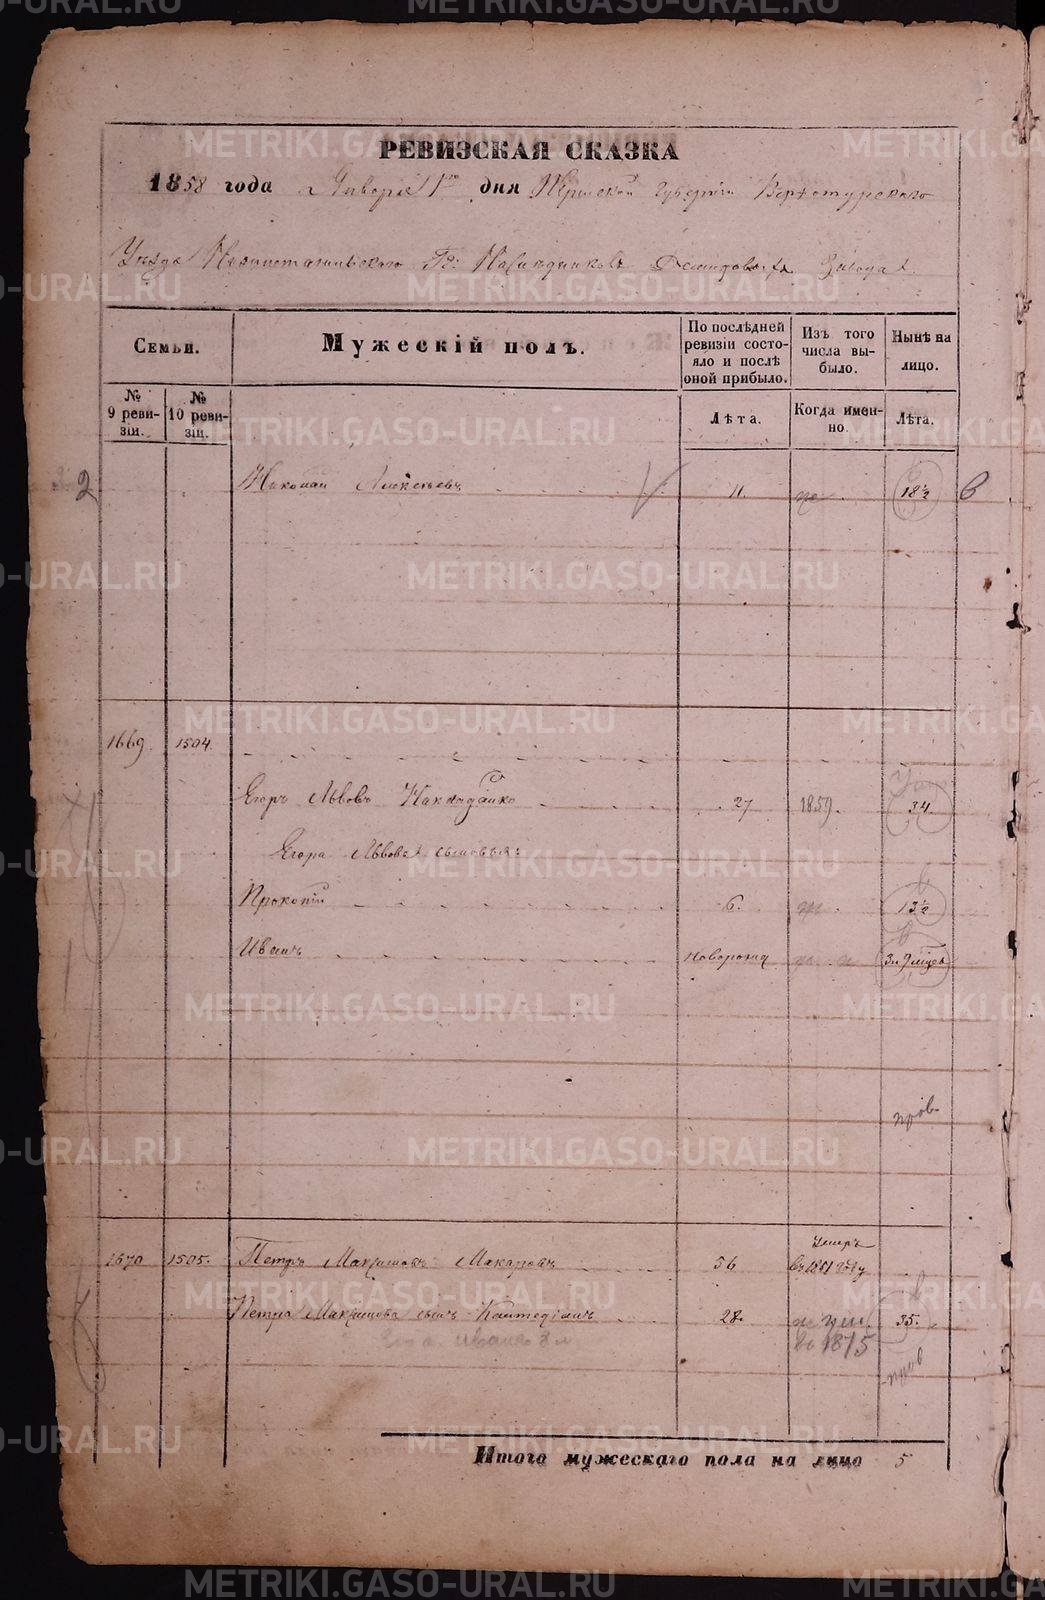 РЕВИЗСКАЯ СКАЗКА
1858 года Января 1го дня Пермской Губернiи Верхотурскаго
Уѣзда Нижнетагильскаго Гг: Наслѣдниковъ Демидовыхъ Завода
Семьи.
Мужескiй полъ.
По послѣдней ревизiи состояло и послѣ оной прибыло.
Изъ того числа выбыло.
Нынѣ на лицо.
№ 9 ревизiи.
№ 10 ревизiи.
Лѣта.
Когда именно.
Лѣта.
2 Николай Алексѣевъ 11. 18½ в
1669. 1504.
Егоръ Львовъ 27 1859. 34.
Егора Львова сыновья
Прокопiй 6. 13½
Иванъ новорожд
пров.
1670 1505. Петръ Макаровъ 56 Умеръ въ 1851 году
Петра сынъ 28. ум. 35.
во 1875
Иванъ 8 л
пров
Итого мужескаго пола на лицо 5
METRIKI.GASO-URAL.RU